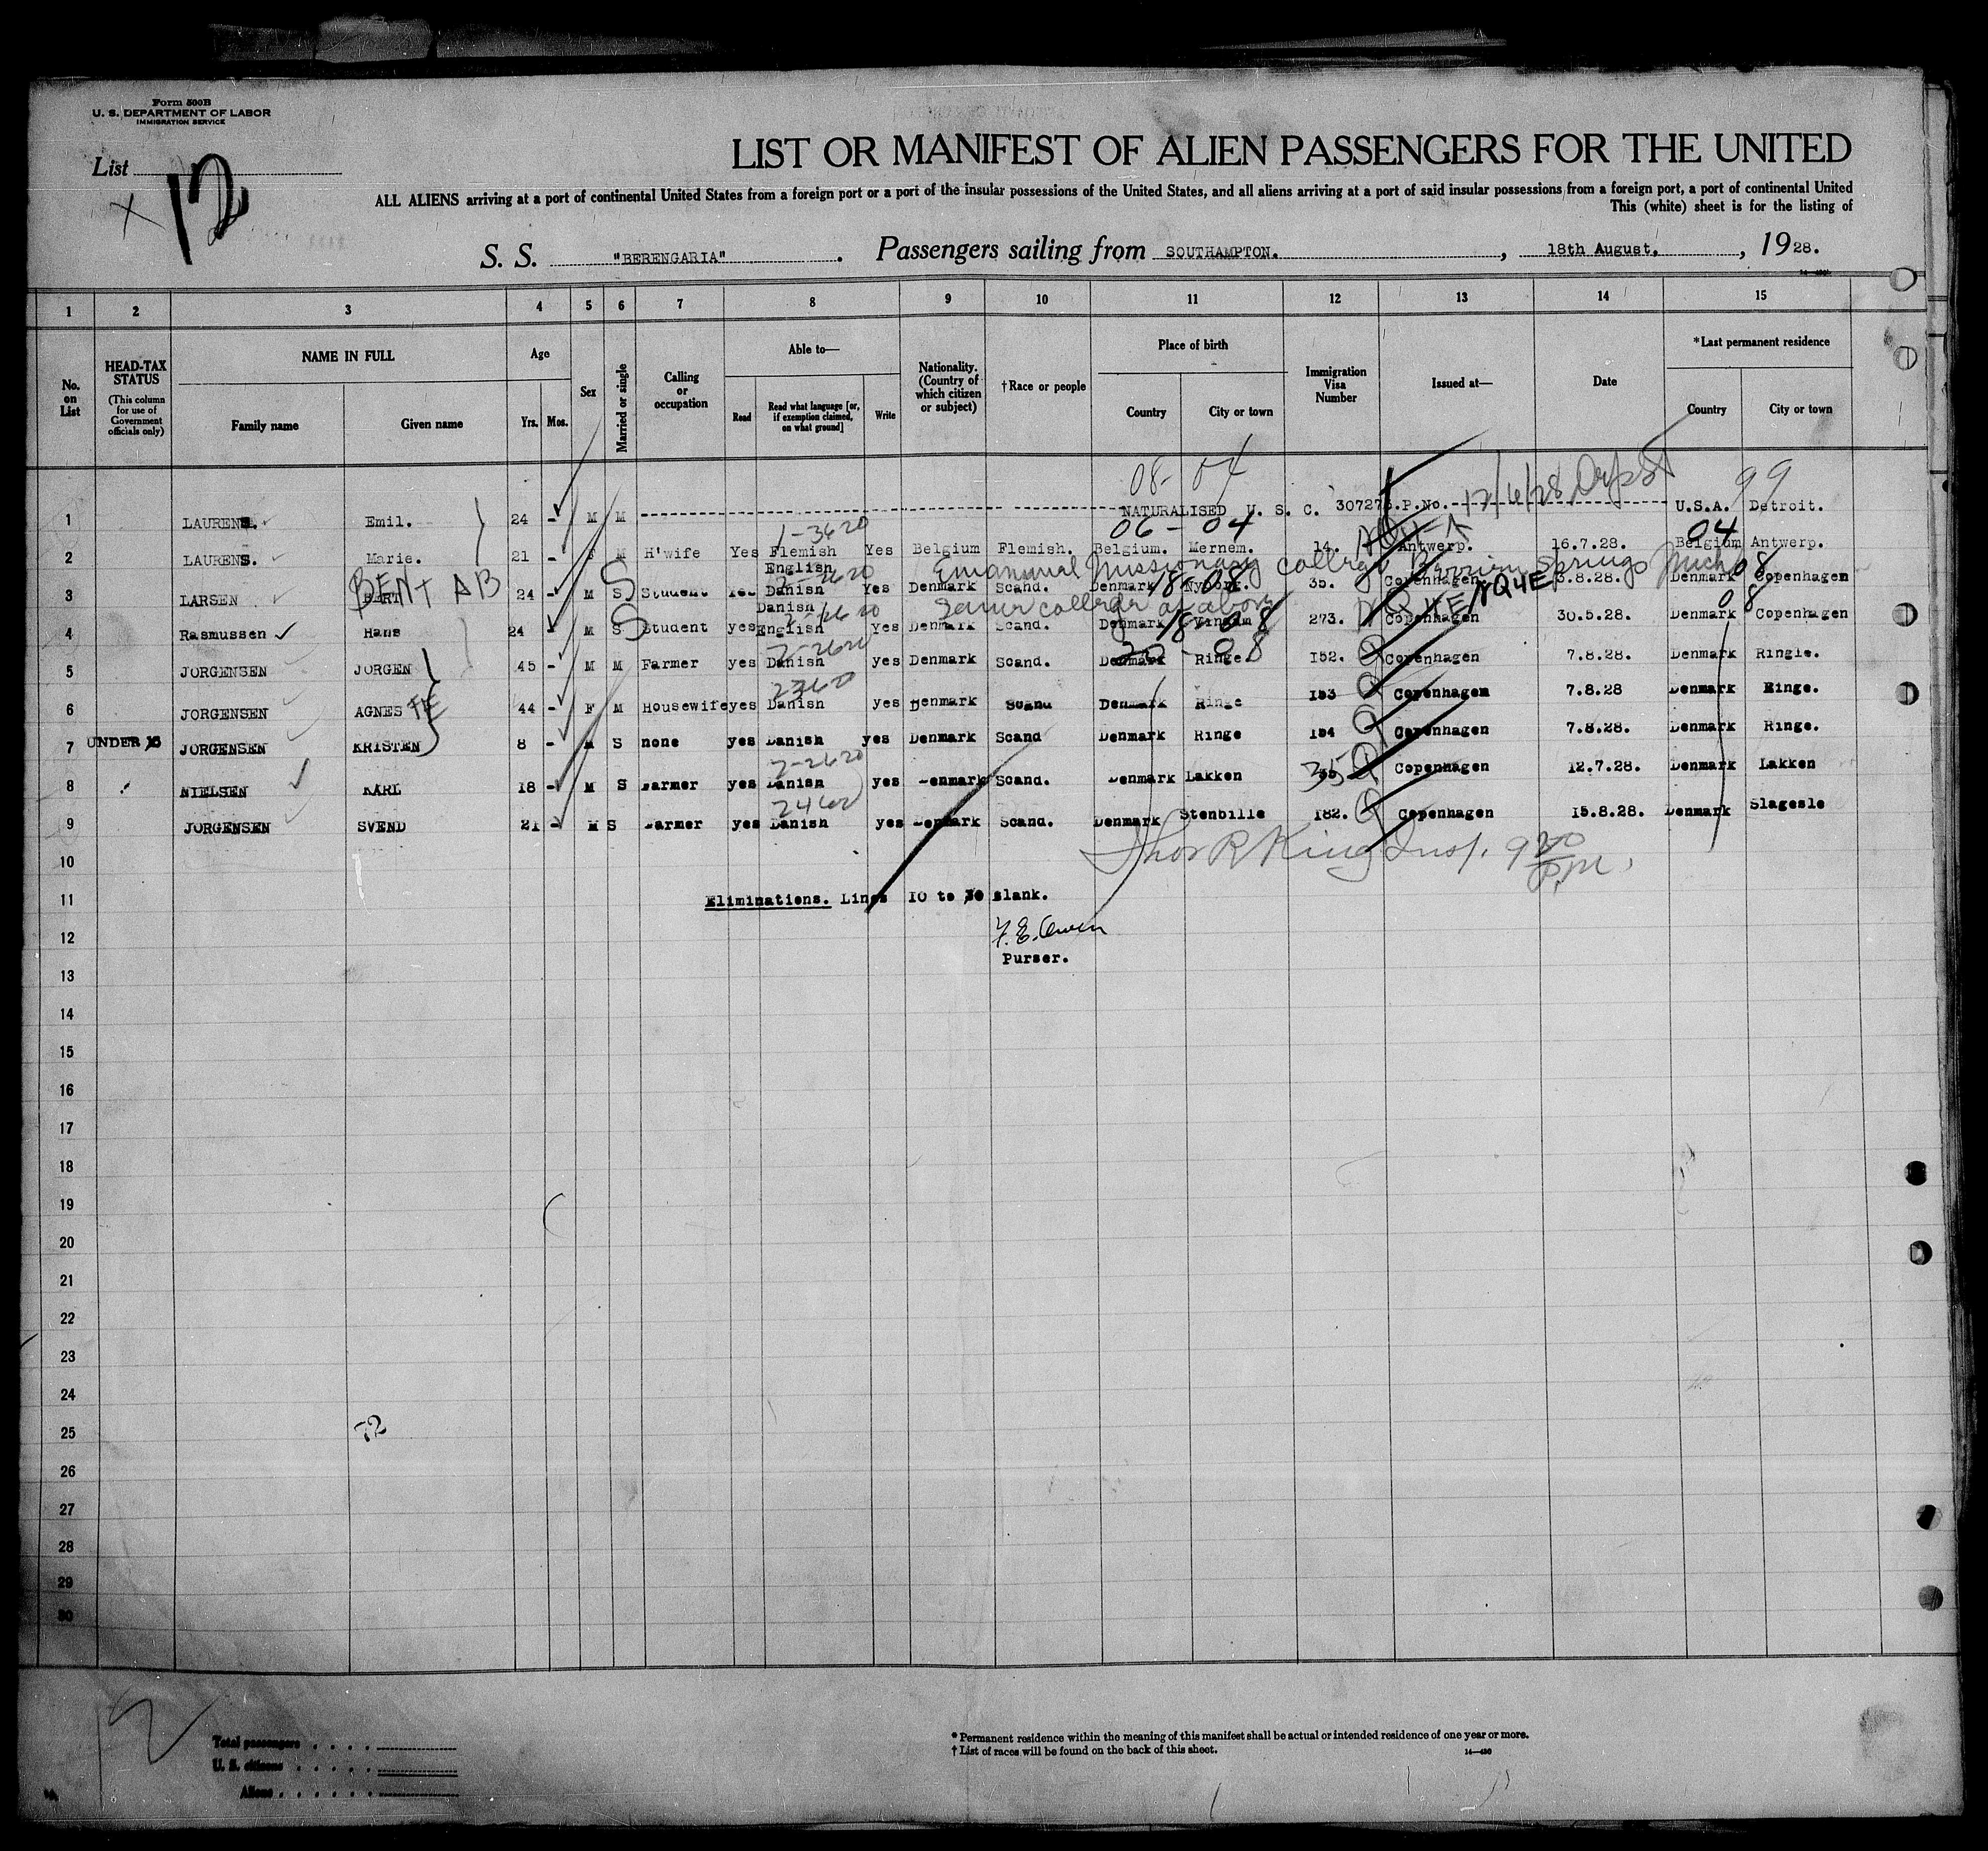 Form 500B
U. S. DEPARTMENT OF LABOR
IMMIGRATION SERVICE
List 12
X
LIST OR MANIFEST OF ALIEN PASSENGERS FOR THE UNITED
ALL ALIENS arriving at a port of continental United States from a foreign port or a port of the insular possessions of the United States, and all aliens arriving at a port of said insular possessions from a foreign port, a port of continental United
This (white) sheet is for the listing of
S. S. "BERENGARIA". Passengers sailing from SOUTHAMPTON., 18th August., 1928.
1 2 3 4 5 6 7 8 9 10 11 12 13 14 15
No. on List
HEAD-TAX STATUS (This column for use of Government officials only)
NAME IN FULL Family name Given name
Age Yrs. Mos.
Sex
Married or single
Calling or occupation
Able to— Read Read what language [or, if exemption claimed, on what ground] Write
Nationality. (Country of which citizen or subject)
†Race or people
Place of birth Country City or town
Immigration Visa Number
Issued at—
Date
*Last permanent residence Country City or town
08-04 99
1 LAURENS. Emil. 24 - M M NATURALISED U. S. C. 307276.P.No. 12/6/28 U.S.A. Detroit.
1-3620 06-04 04
2 LAURENS. Marie. 21 - F M H'wife Yes Flemish Yes Belgium Flemish. Belgium. Mernem. 14. Antwerp. 16.7.28. Belgium Antwerp.
Emanual Missionary College Berrien Springs Mich
BENT AB English 2-2620 18-08 08
3 LARSEN 24 - M S Student Yes Danish Yes Denmark Scand. Denmark 35. Copenhagen 3.8.28. Denmark Copenhagen
Same college as above NQ4E
Danish 18-08 08
4 Rasmussen Hans 24 - M S Student yes English Yes Denmark Scand. Denmark 273. Copenhagen 30.5.28. Denmark Copenhagen
2-2620 20-08
5 JORGENSEN JORGEN 45 - M M Farmer yes Danish yes Denmark Scand. Denmark Ringe. 152. Copenhagen 7.8.28. Denmark Ringle.
6 JORGENSEN AGNES TE 44 - F M Housewife yes Danish yes Denmark Scand Denmark Ringe 153 Copenhagen 7.8.28 Denmark Ringe.
7 UNDER 16 JORGENSEN KRISTEN 8 - M S none yes Danish yes Denmark Scand Denmark Ringe 154 Copenhagen 7.8.28. Denmark Ringe.
2-2620
8 NIELSEN KARL 18 - M S Farmer yes Danish yes Denmark Scand. Denmark Lakken 35 Copenhagen 12.7.28. Denmark Lakken
9 JORGENSEN SVEND 21 - M S Farmer yes Danish yes Denmark Scand. Denmark Stenbille 182. Copenhagen 15.8.28. Denmark Slagesle
10 R King Insp. 9 20 P.M.
11 Eliminations. Lines 10 to 30 Blank.
12 F. E. Owen
13 Purser.
14
15
16
17
18
19
20
21
22
23
24
25 72
26
27
28
29
30
Total passengers
U. S. citizens
Aliens
* Permanent residence within the meaning of this manifest shall be actual or intended residence of one year or more.
† List of races will be found on the back of this sheet.
14—430